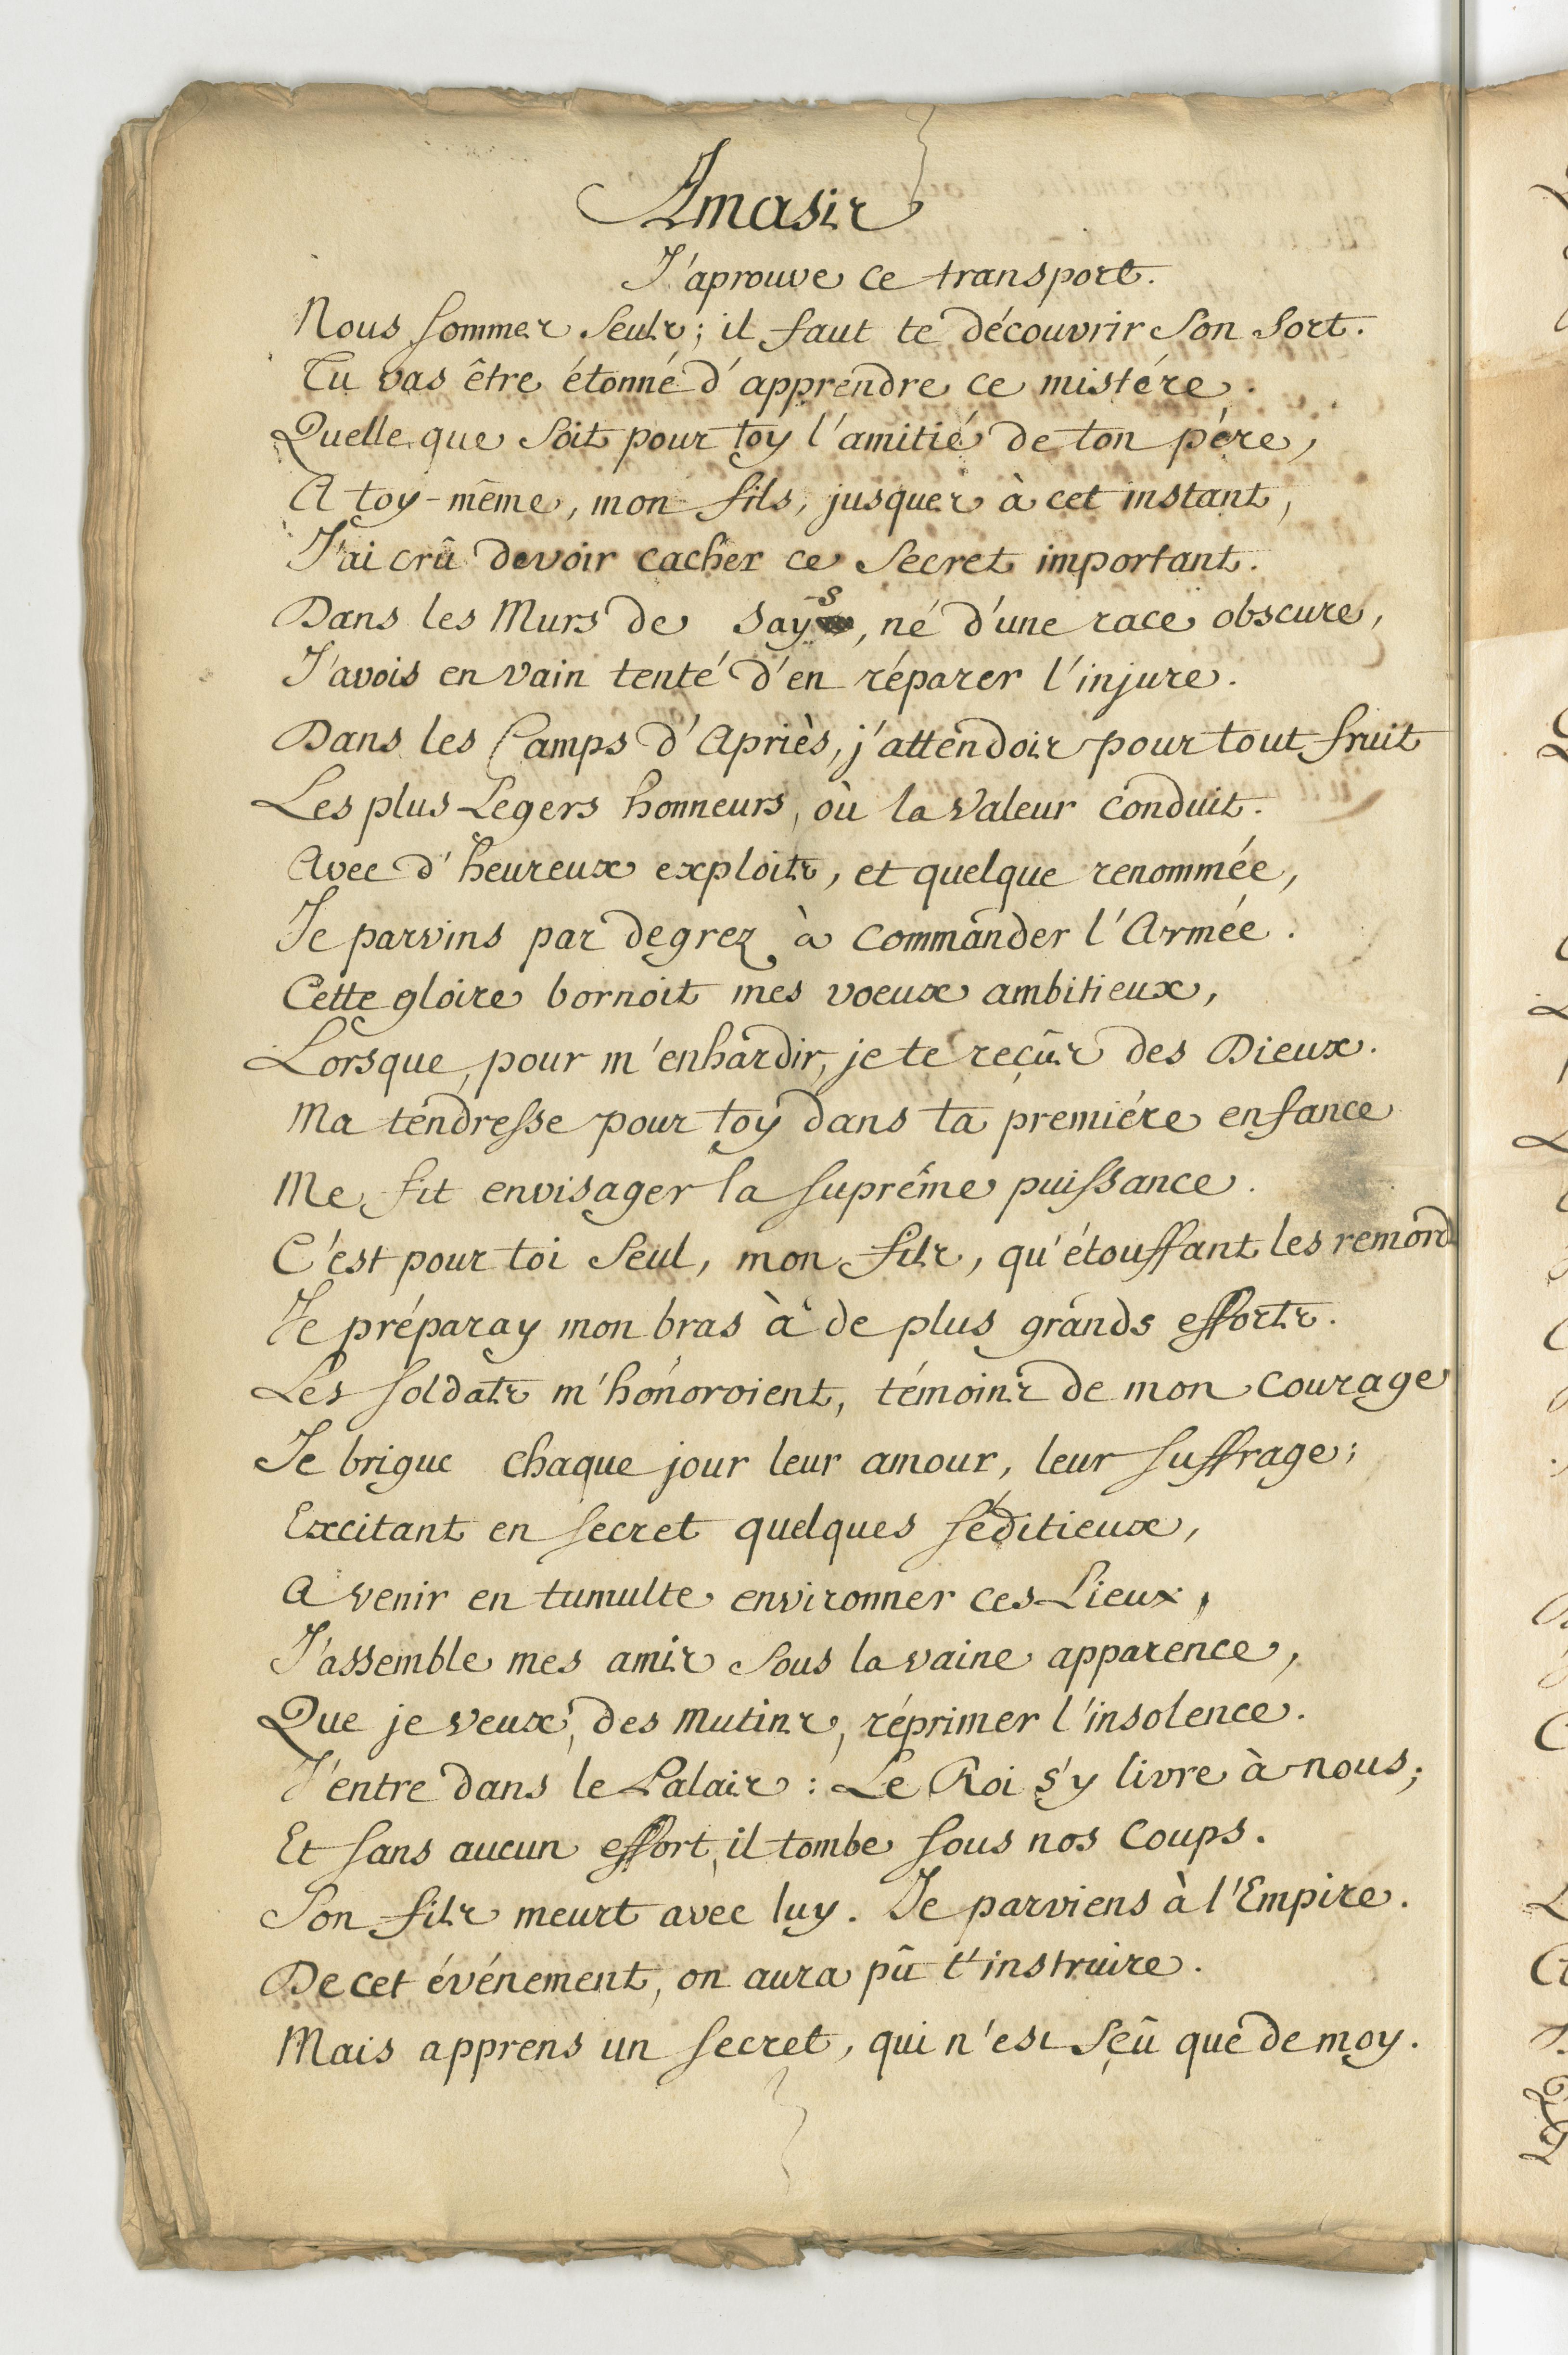 Amasis
J'aprouve ce transport.
Nous sommes seuls; il faut te découvrir son sort.
Tu vas être étonné d'apprendre ce mistére.
Quelle que soit pour toy l'amitié de ton pére,
A toy-même, mon fils, jusques à cet instant,
J'ai crû devoir cacher ce secret important.
Dans les Murs de Says, né d'une race obscure,
J'avois en vain tenté d'en réparer l'injure.
Dans les Camps d'Apriès, j'attendois pour tout fruit
Les plus Legers honneurs, où la valeur conduit.
Avec d'heureux exploits, et quelque renommée,
Je parvins par degrez à commander l'Armée.
Cette gloire bornoit mes voeux ambitieux,
Lorsque, pour m'enhardir, je te reçûs des Dieux.
Ma tendresse pour toy dans ta premiére enfance
Me fit envisager la suprême puissance.
C'est pour toi seul, mon fils, qu'étouffant les remord
Je préparay mon bras à de plus grands efforts.
Les soldats m'honoroient, témoins de mon courage
Je brigue chaque jour leur amour, leur suffrage;
Excitant en secret quelques séditieux,
A venir en tumulte environner ces Lieux,
J'assemble mes amis sous la vaine apparence,
Que je veux, des mutins, réprimer l'insolence.
J'entre dans le Palais: Le Roi s'y livre à nous;
Et sans aucun effort, il tombe sous nos coups.
Son fils meurt avec luy. Je parviens à l'Empire.
De cet événement, on aura pû t'instruire.
Mais apprens un secret, qui n'est sçû que de moy.